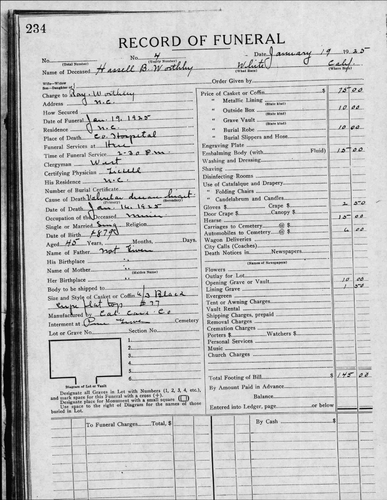 234
RECORD OF FUNERAL
No. No. 4 Date January 19 1925
(Total Number) (Yearly Number)
Name of Deceased Hassell B. Worthley White Calif.
(What Race) (Where Born)
Wife—Widow
Son—Daughter of Order Given by
Charge to Ray Worthley
Address N.C.
How Secured
Date of Funeral Jan. 19, 1925
Residence N.C.
Place of Death Co. Hospital
Funeral Services at Here
Time of Funeral Service 2:30 P.M.
Clergyman West
Certifying Physician
His Residence N.C.
Number of Burial Certificate
Cause of Death Valvular disease heart
Date of Death Jan. 1925
Occupation of the Deceased Miner
Single or Married Sing. Religion
Date of Birth 1879
Aged 45 Years Months, Days.
Name of Father Not Given
His Birthplace
Name of Mother
(Maiden Name)
Her Birthplace
Body to be shipped to
Size and Style of Casket or Coffin 6/3 Black
flat top #27
Manufactured by Cal. Cas. Co
Interment at Pine Grove Cemetery
Lot or Grave No. Section No.
1
2
3
4
5
6
Diagram of Lot or Vault
Designate all Graves in Lot with Numbers (1, 2, 3, 4, etc.), and mark space for this Funeral with a cross (+).
Designate place for Monument with a small square
Use space to right of Diagram for the names of those buried in Lot.
Price of Casket or Coffin 75 00
" Metallic Lining
(State Kind)
" Outside Box 10 00
(State Kind)
" Grave Vault
(State Kind)
" Burial Robe 10 00
(State Kind)
" Burial Slippers and Hose
Engraving Plate
Embalming Body (with Fluid) 15 00
Washing and Dressing
Shaving
Disinfecting Rooms
Use of Catafalque and Drapery
" Folding Chairs
" Candelabrum and Candles
Gloves $ Crape $ 2 50
Door Crape $ Canopy $
Hearse 15 00
Carriages to Cemetery @ $
Automobiles to Cemetery @ $ 6 00
Wagon Deliveries
City Calls (Coaches)
Death Notices in Newspapers
(Names of Newspapers)
Flowers
Outlay for Lot
Opening Grave or Vault 10 00
Lining Grave 1 50
Evergreen
Tent or Awning Charges
Vault Rental
Shipping Charges, prepaid
Removal Charges
Cremation Charges
Porters $ Watchers $
Personal Services
Music
Church Charges
Total Footing of Bill 145 00
By Amount Paid in Advance
Balance
Entered into Ledger, page or below
To Funeral Charges Total, $ By Cash $